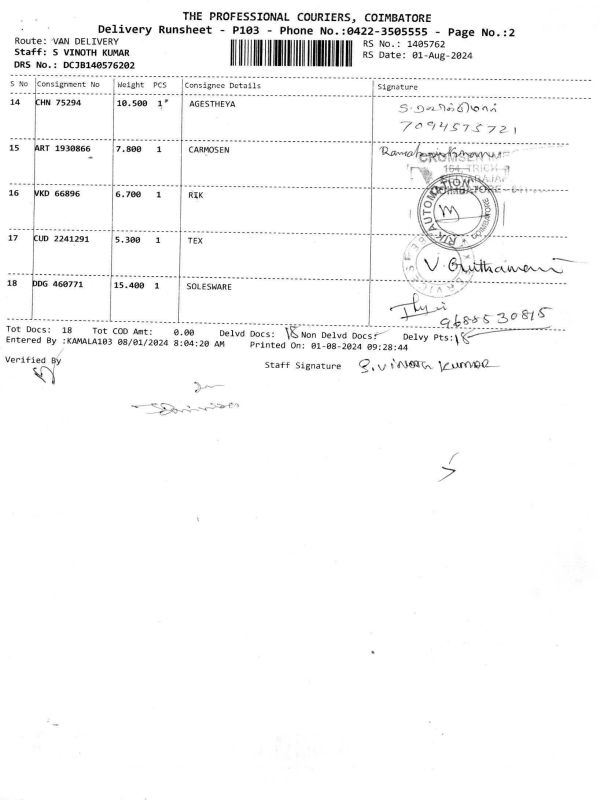 THE PROFESSIONAL COURIERS, COIMBATORE
Delivery Runsheet - P103 - Phone No.:0422-3505555 - Page No.:2
Route: VAN DELIVERY
RS No.: 1405762
Staff: S VINOTH KUMAR
RS Date: 01-Aug-2024
DRS No.: DCJB140576202
S No Consignment No Weight PCS Consignee Details Signature
14 CHN 75294 10.500 1 AGESTHEYA
7094575721
15 ART 1930866 7.800 1 CARMOSEN
16 VKD 66896 6.700 1 RIK
RIK AUTOMATION
COIMBATORE
17 CUD 2241291 5.300 1 TEX
18 DDG 460771 15.400 1 SOLESWARE
9688530815
Tot Docs: 18 Tot COD Amt: 0.00 Delvd Docs: 18 Non Delvd Docs: Delvy Pts: 18
Entered By :KAMALA103 08/01/2024 8:04:20 AM Printed On: 01-08-2024 09:28:44
Verified By
Staff Signature S.VINOTH KUMAR